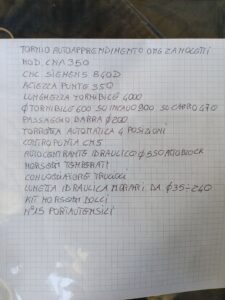 TORNIO AUTOAPPRENDIMENTO OMG ZANOLETTI
MOD. CNA350
CNC SIEMENS 840D
ALTEZZA PUNTE 350
LUNGHEZZA TORNIBILE 4000
Ø TORNIBILE 600 SU INCAVO 900 SU CARRO 470
PASSAGGIO BARRA Ø200
TORRETTA AUTOMATICA 4 POSIZIONI
CONTROPUNTA CM5
AUTOCENTRANTE IDRAULICO Ø550 AUTOBLOCK
MORSETTI TEMPERATI
CONVOGLIATORE TRUCIOLI
LUNETTA IDRAULICA DA Ø35-240
KIT MORSETTI DOLCI
N°15 PORTAUTENSILI